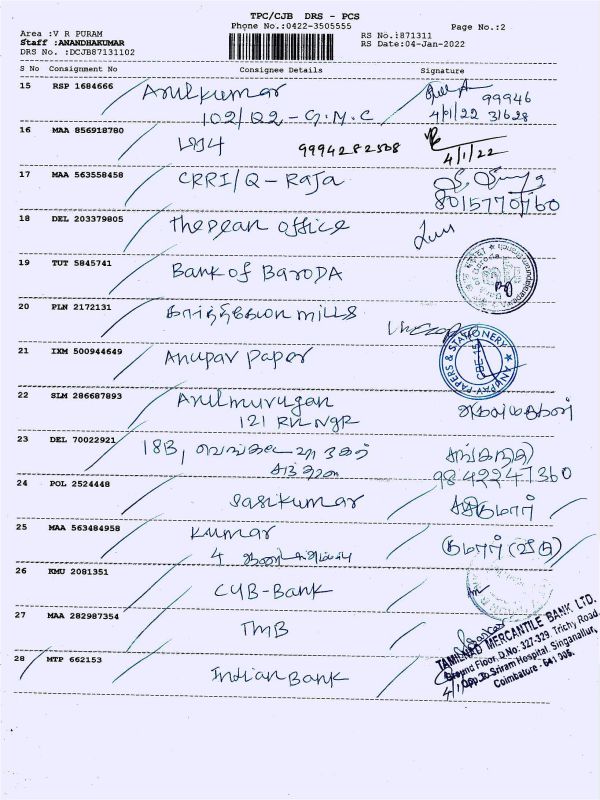 TPC/CJB DRS - PCS
Phone No.:0422-3505555
Page No.:2
Area :V R PURAM
Staff :ANANDHAKUMAR
DRS No. :DCJB87131102
RS No.:871311
RS Date:04-Jan-2022
S No Consignment No Consignee Details Signature
15 RSP 1684666 Arulkumar
102/Q2-G.M.C
99946
4/1/22 31628
16 MAA 856918780
9994282508
4/1/22
17 MAA 563558458 CRRI/Q-Raja
8015770760
18 DEL 203379805 The Dean office
19 TUT 5845741 Bank of BaroDA
20 PLN 2172131 கார்த்திகேயா mills
21 IXM 500944649 Anupav Paper
ANUPAV PAPERS & STATIONERY
CBE-15
22 SLM 286687893 Arulmurugan
121 RK NGR
23 DEL 70022921 18B,
9842247360
24 POL 2524448 Sasikumar
சசிகுமார்
25 MAA 563484958 Kumar
4
குமார்
26 KMU 2081351 CUB-Bank
27 MAA 282987354 TMB
TAMILNAD MERCANTILE BANK LTD.
Ground Floor, D.No: 327-329, Trichy Road,
Opp.To Sriram Hospital, Singanallur,
Coimbatore - 641 005.
28 MTP 662153 Indian Bank